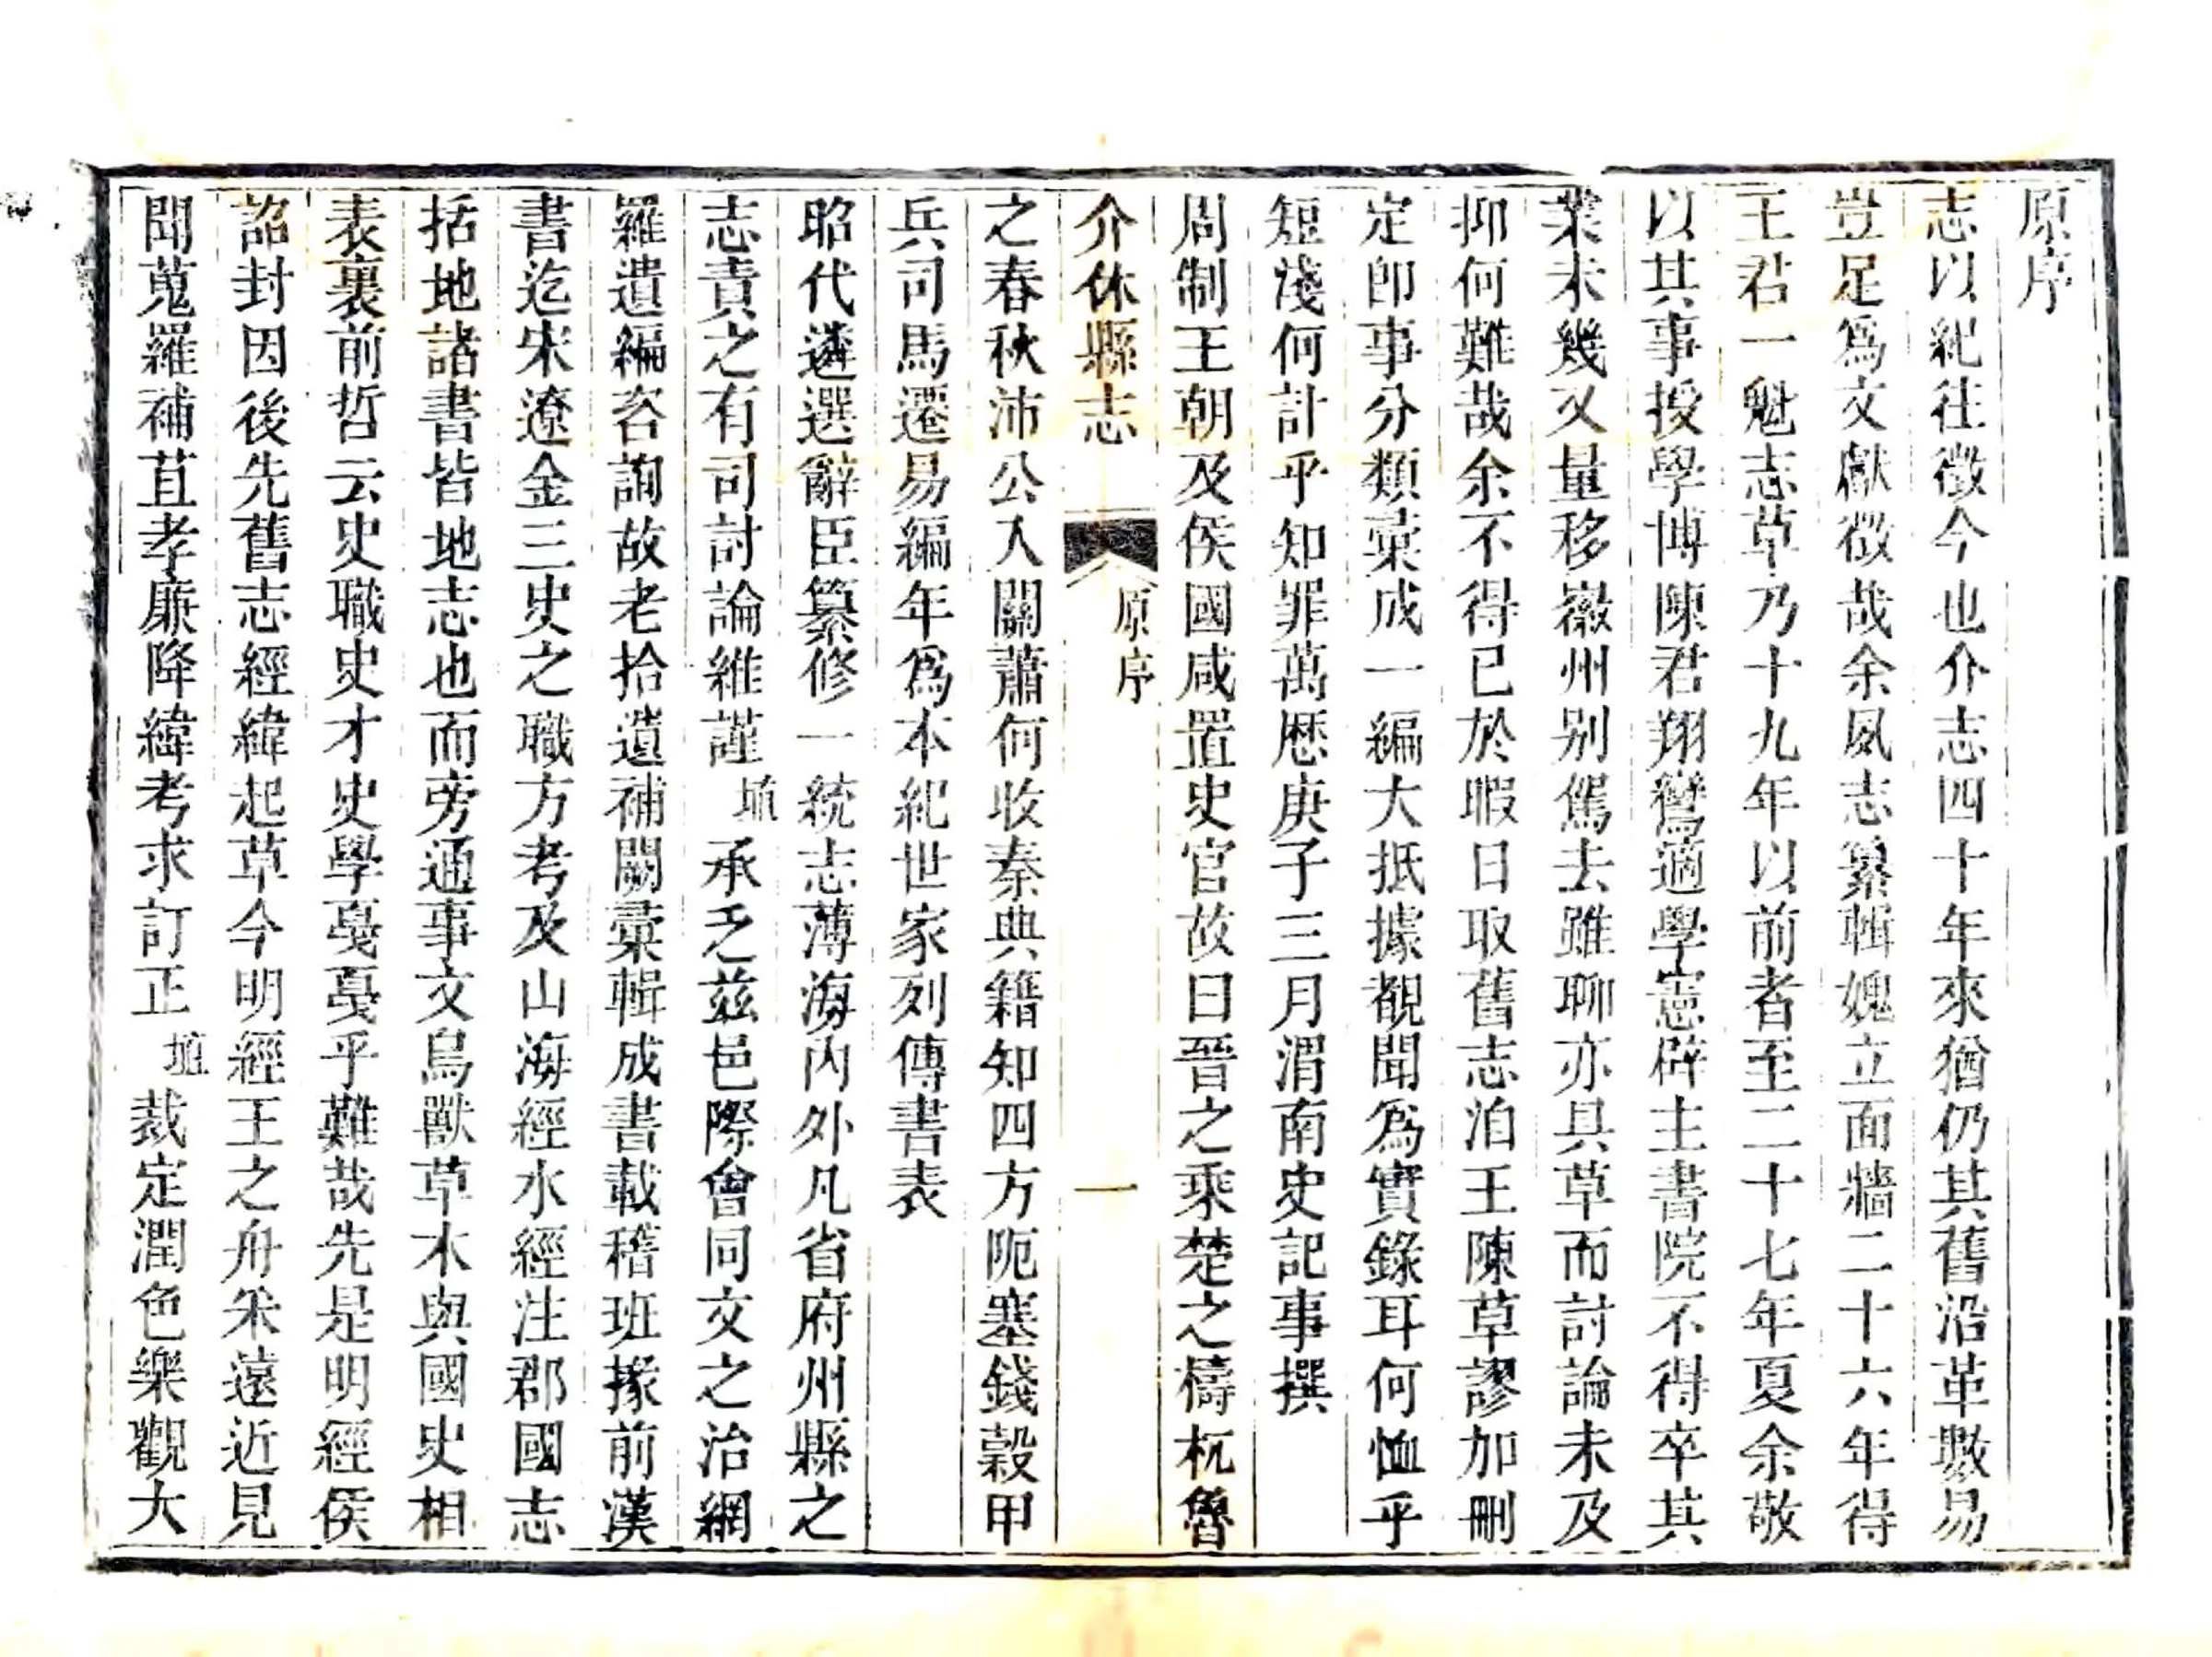 原序
志以紀往徵今也介志四十年來猶仍其舊沿革數易
豈足爲文獻徵哉余夙志纂輯媿立面牆二十六年得
王君一魁志草乃十九年以前者至二十七年夏余敬
以其事授學博陳君翔鸞適學憲辟主書院不得卒其
業未幾又量移嶽州别駕去雖聊亦具草而討論未及
抑何難哉余不得已於暇日取舊志洎王陳草謬加刪
定即事分類彙成一編大抵據覩聞爲實錄耳何恤乎
短淺何計乎知罪萬厯庚子三月渭南史記事撰
周制王朝及侯國咸置史官故曰晉之乘楚之檮杌魯
介休縣志
原序
一
之春秋沛公入關蕭何收秦典籍知四方阨塞錢穀甲
兵司馬遷易編年爲本紀世家列傳書表
昭代遴選辭臣纂修一統志薄海內外凡省府州縣之
志責之有司討論維謹埴承乏兹邑際會同文之治網
羅遺編咨詢故老拾遺補闕彙輯成書載稽班掾前漢
書迄宋遼金三史之職方考及山海經水經注郡國志
括地諸書皆地志也而旁通事文鳥獸草木與國史相
表裏前哲云史職史才史學戞戞乎難哉先是明經侯
詔封因後先舊志經緯起草今明經王之舟采遠近見
聞蒐羅補苴孝廉降緯考求訂正埴裁定潤色樂觀大